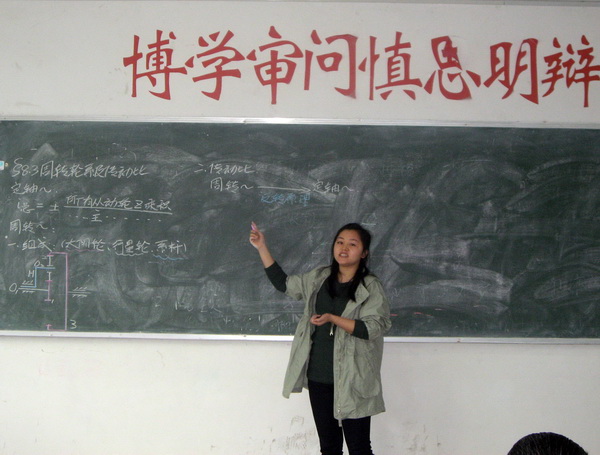 博学审问慎思明辩
§8.3周转轮系及传动比
定轴~
i = ± 所有从动轮Z乘积
主 ······
周转~：
一.组成：(太阳轮、行星轮、系杆)
二.传动比
周转~ → 定轴~
H
O₁
3